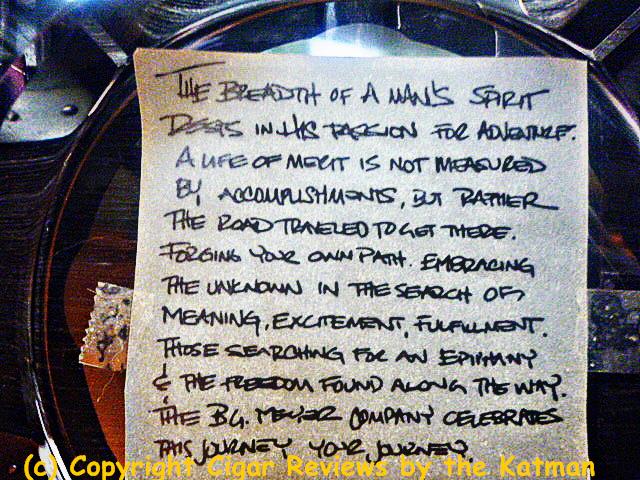 THE BREADTH OF A MAN'S SPIRIT
IN HIS PASSION FOR ADVENTURE.
A LIFE OF MERIT IS NOT MEASURED
BY ACCOMPLISHMENTS, BUT RATHER
THE ROAD TRAVELED TO GET THERE.
FORGING YOUR OWN PATH. EMBRACING
THE UNKNOWN IN THE SEARCH OF
MEANING, EXCITEMENT, FULFILLMENT.
THOSE SEARCHING FOR AN EPIPHANY
& THE FREEDOM FOUND ALONG THE WAY.
THE B.G. MEYER COMPANY CELEBRATES
THIS JOURNEY YOUR JOURNEY.
(c) Copyright Cigar Reviews by the Katman